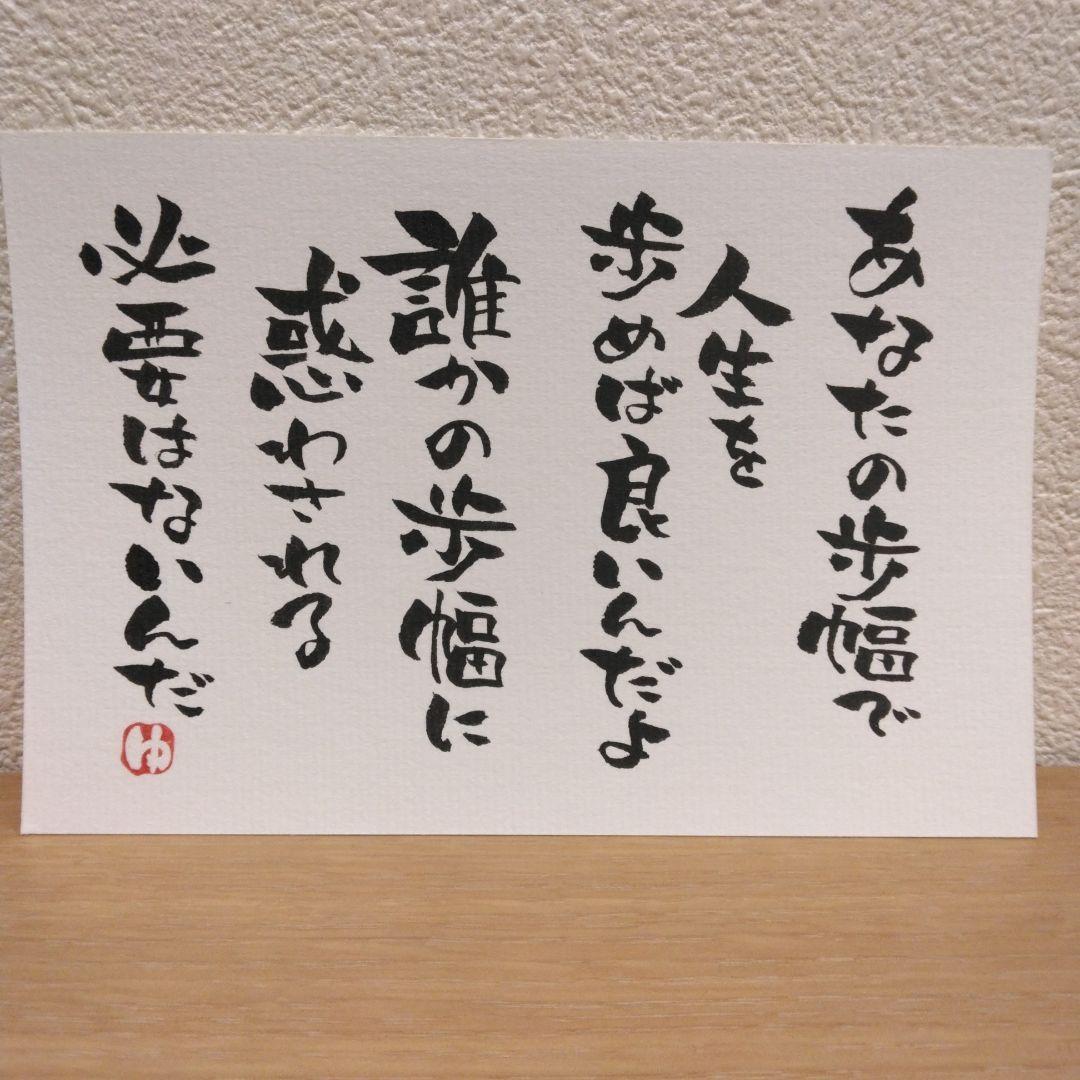 あなたの歩幅で
人生を
歩めば良いんだよ
誰かの歩幅に
惑わされる
必要はないんだ
ゆ